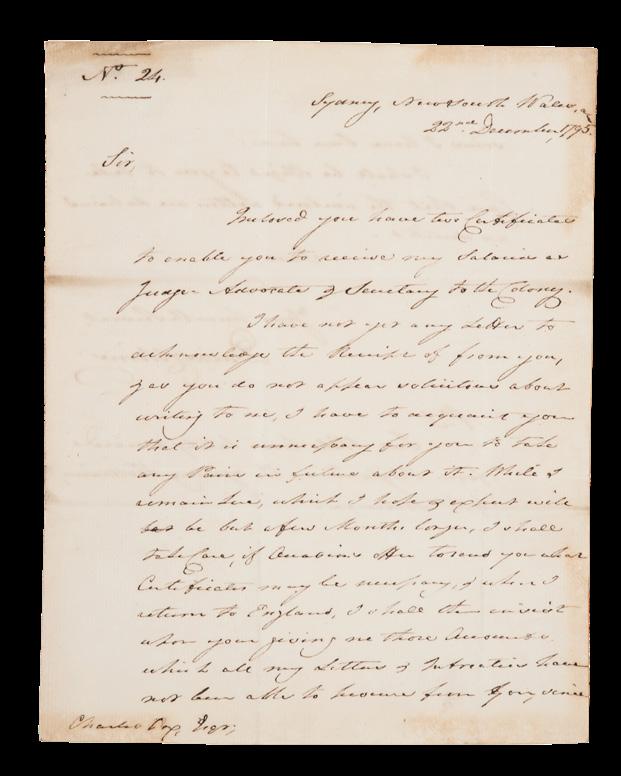 No. 24.
Sydney, New South Wales,
22nd December, 1795.
Sir,
Inclosed you have two Certificates
to enable you to receive my Salaries as
Judge Advocate & Secretary to the Colony.
I have not yet any Letter to
acknowledge the Receipt of from you,
you do not appear solicitous about
writing to me, I have to acquaint you
that it is unnecessary for you to take
any Pains in future about it. While I
remain here, which I hope & expect will
be but a few Months longer, I shall
take Care, if Occasions offer to send you what
Certificates may be necessary, & when I
return to England, I shall then insist
upon your giving me those Accounts
which all my Letters & Intreaties have
not been able to procure from you since
Charles Cox, Esqr;